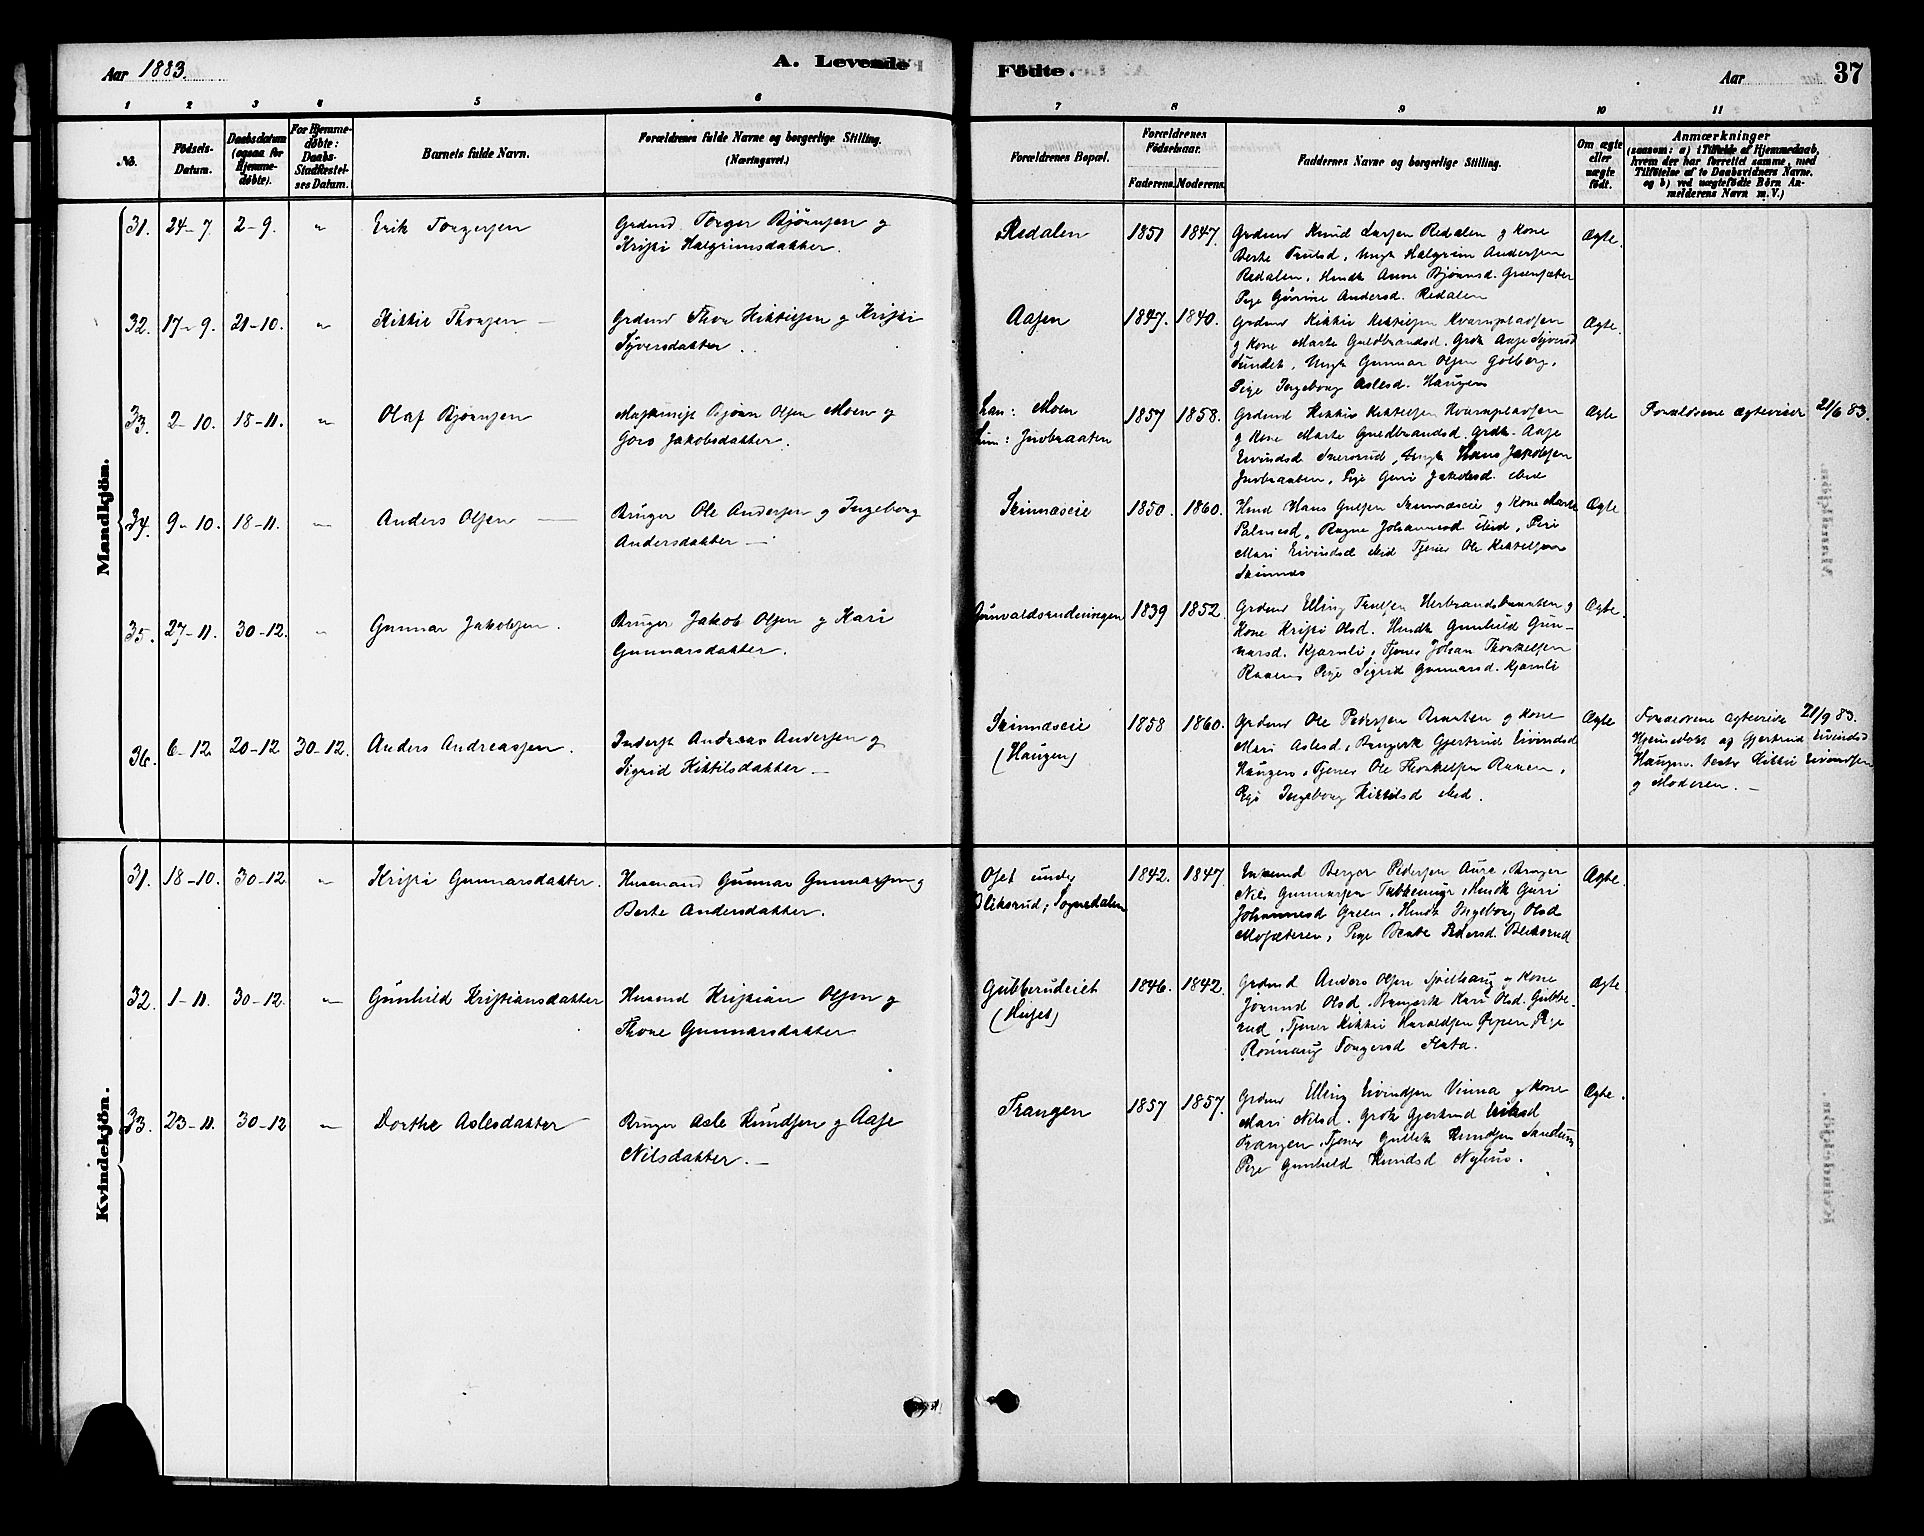 Aar 1883.
A. Levende
Födte.
Aar
37
1 2 3 4 5 6 7 8 9 10 11
No.
Födsels-Datum.
Daabsdatum (ogsaa for Hjemme-døbte).
For Hjemme-døbte: Daabs-Stadfæstel-ses Datum.
Barnets fulde Navn.
Forældrenes fulde Navne og borgerlige Stilling.
(Næringsvei.)
Forældrenes Bopæl.
Forældrenes Födselsaar.
Faderens. Moderens.
Faddernes Navne og borgerlige Stilling.
Om ægte eller uægte födt.
Anmærkninger
(saasom: a) Tilfælde af Hjemmedaab, hvem der har forrettet samme, med Tilføielse af to Daabsvidners Navne. og b) ved uægtefødte Börn An-melderens Navn m. V.)
Mandkjön.
31. 24-7. 2-9. " Erik Torgersen
Grdmd Torger Bjørnsen g
Kristi Halgrimsdatter.
Redalen 1851 1847.
Grdmd Knud Larsen Redalen g Kone
Berte Trulsd, Ungk Halgrim Andersen
Redalen, Hmdk Anne Bjørnsd. Grønsæter
Pige Gurine Andersd. Redalen
Ægte.
32. 17-9. 21-10. " Kittil Thorsen
Grdmd Thor Kittilsen g Kristi
Syversdatter.
Aasen 1847. 1840.
Grdmd Kittil Kittilsen Kvarnpladsen
g Kone Marte Guldbrandsd. Grdk Aase Syversd
Sundet, Ungk Gunnar Olsen Golberg,
Pige Ingeborg Aslesd. Haugen
Ægte.
33. 2-10. 18-11. " Olaf Bjørnsen
Maskinist Bjørn Olsen Moen g
Goro Jakobsdatter.
Han: Moen
Hun: Juvbraaten
1857 1858.
Grdmd Kittil Kittilsen Kvarnpladsen
g Kone Marte Guldbrandsd. Grdk. Aase
Eivindsd Snersrud, Ungk Hans Jakobsen
Juvbraaten, Pige Guri Jakobsd. ibid
Ægte
Forældrene ægteviede 21/6 83.
34. 9-10. 18-11. " Anders Olsen
Bruger Ole Andersen g Ingeborg
Andersdatter
Skinnæseie 1850. 1860.
Hmd Hans Gulsen Skinnæseie g Kone Marte
Palmesd, Ragne Johannesd ibid, Pige
Mari Eivindsd ibid Tjener Ole Kittilsen
Skinnes
Ægte.
35. 27-11. 30-12. " Gunnar Jakobsen.
Bruger Jakob Olsen g Kari
Gunnarsdatter.
Gunvaldsrudeningen 1839 1852.
Grdmd Elling Trulsen Herbrandsbraaten g
Kone Kristi Olsd. Hmdk Gunhild Gun-
narsd. Kjarnli, Tjener Johan Thorkelsen
Raaen, Pige Sigrid Gunnarsd. Kjarnli
Ægte.
36. 6-12. 20-12 30-12. Anders Andreassen.
Inderst Andreas Andersen g
Sigrid Kittilsdatter
Skinnæseie
(Haugen)
1858 1860.
Grdmd Ole Pedersen Braaten g Kone
Mari Aslesd, Brugerk Gjertrud Eivindsd
Haugen, Tjener Ole Thorkelsen Raaen,
Pige Ingeborg Kittilsd ibid.
Ægte
Forældrene ægteviede 21/9 83.
Hjemmedøbt af Gjertrud Eivindsd
Haugen. Testes Kittil Eivindsen
g Moderen.
Kvindekjön.
31. 18-10. 30-12 " Kristi Gunnarsdatter.
Husmand Gunnar Gunnarsen g
Berte Andersdatter.
Oset under
Bliksrud, Sognedalen
1842. 1847.
Berger Pedersen Aure, Bruger
Nils Gunnarsen Tubbemyr, Hmdk Guri
Johannesd Green, Hmdk Ingeborg Olsd
Mosæteren, Pige Beate Pedersd. Bliksrud
Ægte.
32. 1-11. 30-12. " Gunhild Kristiansdatter
Husmd Kristian Olsen g
Thone Gunnarsdatter
Gubberudeiet
(Huset)
1846. 1842.
Grdmd Anders Olsen g Kone
Jorand Olsd. Brugerk Kari Olsd. Gubbe-
rud, Tjener Kittil Haraldsen Pige
Rønnaug Torgersd Slata.
Ægte
33. 23-11. 30-12 " Dorthe Aslesdatter
Bruger Asle Knudsen g Aase
Nilsdatter.
Trangen 1857 1857.
Grdmd Elling Eivindsen Vinna g Kone
Mari Nilsd. Grdk Gjertrud
Trangen, Tjener Gullik Knudsen Sandum
Pige Gunhild Knudsd Nyhus.
Ægte.